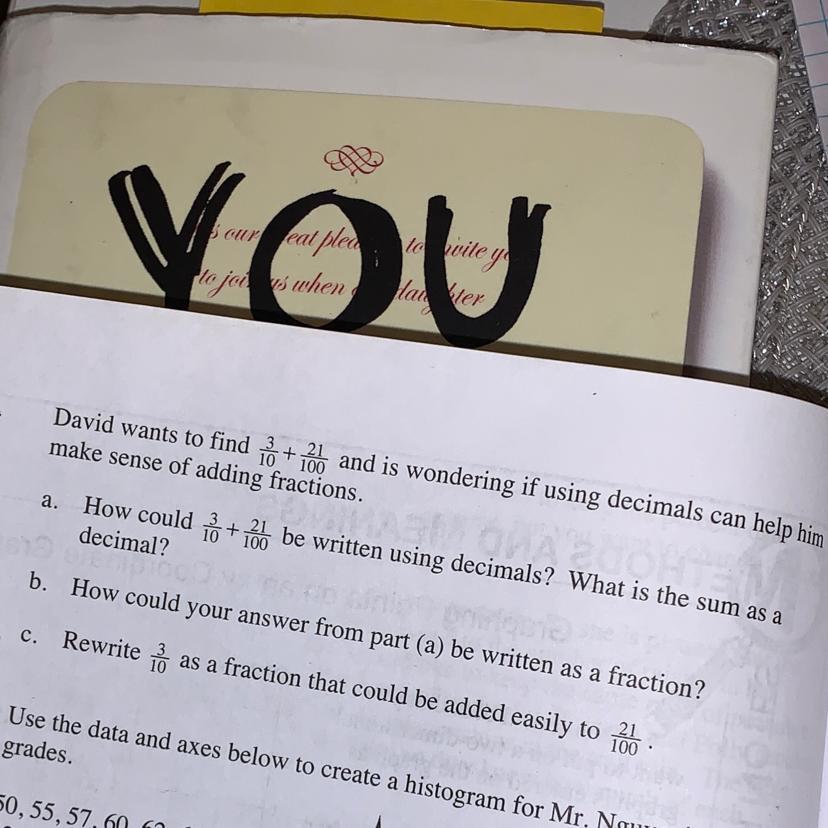 YOU
our eat to vite
to us when
David wants to find 3/10 + 21/100 and is wondering if using decimals can help him
make sense of adding fractions.
a. How could 3/10 + 21/100 be written using decimals? What is the sum as a
decimal?
b. How could your answer from part (a) be written as a fraction?
c. Rewrite 3/10 as a fraction that could be added easily to 21/100.
Use the data and axes below to create a histogram for Mr.
grades.
50, 55, 57, 60,